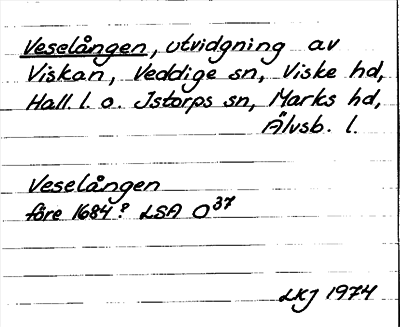 Veselången, utvidgning av
Viskan, Veddige sn, Viske hd,
Hall. l. o. Istorps sn, Marks hd,
Älvsb. l.
Veselången
före 1684? LSA O37
LKJ 1974